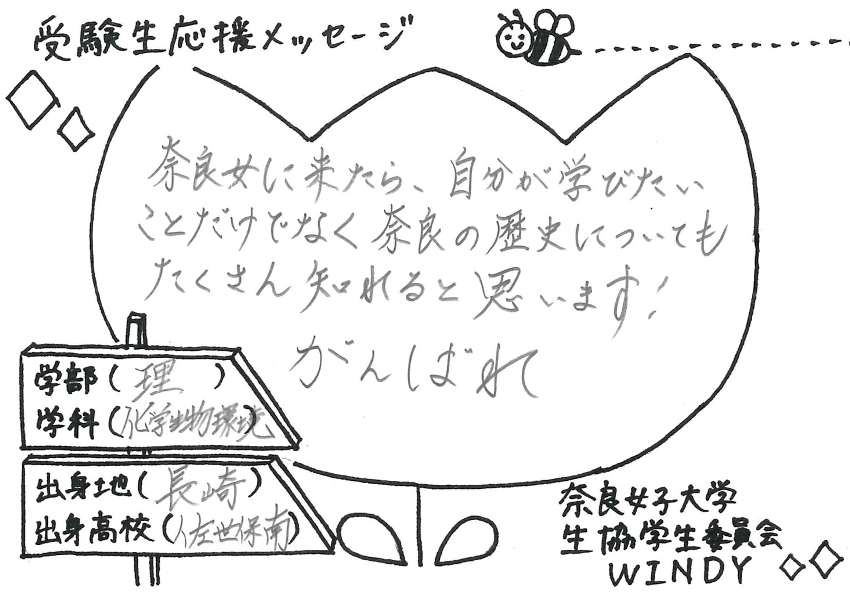 受験生応援メッセージ
奈良女に来たら、自分が学びたい
ことだけでなく奈良の歴史についても
たくさん知れると思います!
がんばれ
学部(理)
学科(化学生物環境)
出身地(長崎)
出身高校(佐世保南)
奈良女子大学
生協学生委員会
WINDY